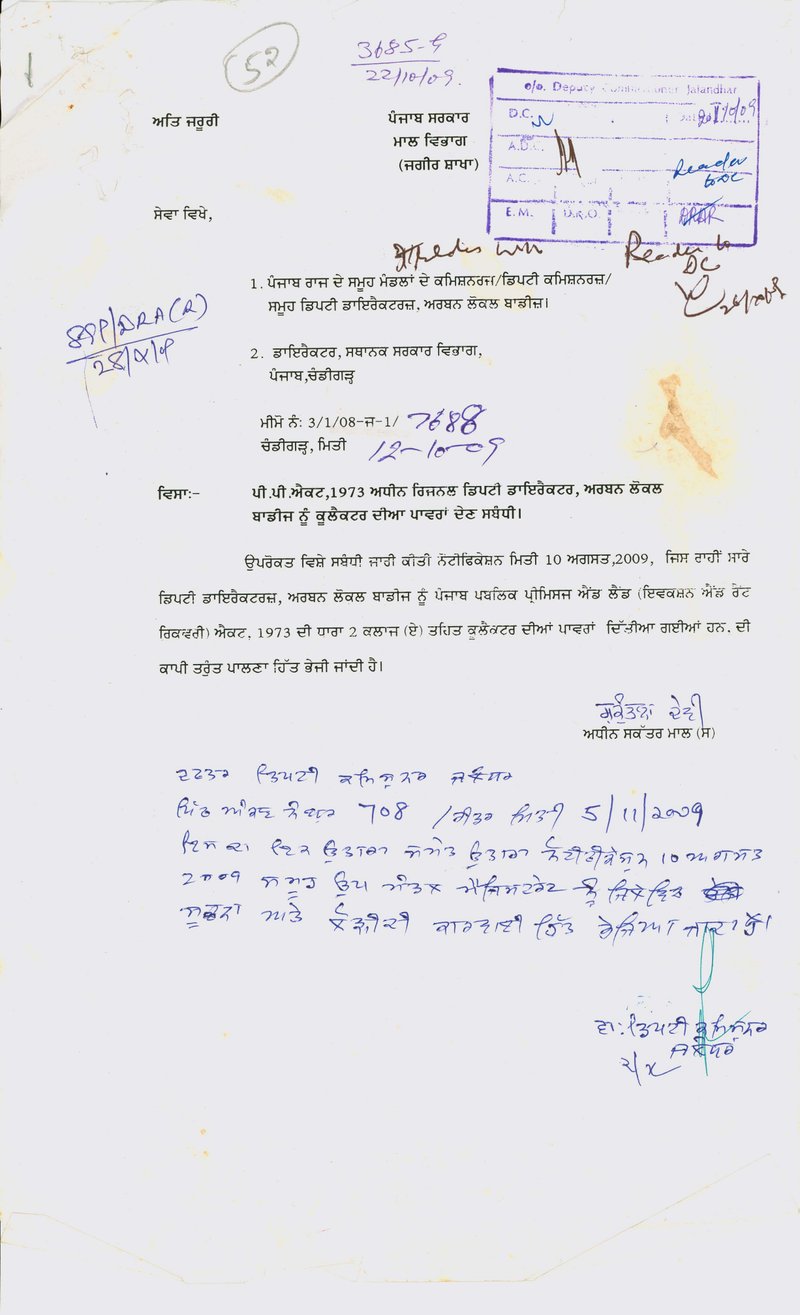 52
3685-G
22/10/09
o/o. Deputy Commissioner Jalandhar
D.C.
A.D.C.
A.C.
E.M. D.R.O.
Reader
to DC
ਅਤਿ ਜਰੂਰੀ
ਪੰਜਾਬ ਸਰਕਾਰ
ਮਾਲ ਵਿਭਾਗ
(ਜਗੀਰ ਸ਼ਾਖਾ)
ਸੇਵਾ ਵਿਖੇ,
Reader to
DC
1. ਪੰਜਾਬ ਰਾਜ ਦੇ ਸਮੂਹ ਮੰਡਲਾਂ ਦੇ ਕਮਿਸ਼ਨਰਜ/ਡਿਪਟੀ ਕਮਿਸ਼ਨਰਜ਼/
ਸਮੂਹ ਡਿਪਟੀ ਡਾਇਰੈਕਟਰਜ਼, ਅਰਬਨ ਲੋਕਲ ਬਾਡੀਜ਼।
899/DRA(R)
28/X/9
2. ਡਾਇਰੈਕਟਰ, ਸਥਾਨਕ ਸਰਕਾਰ ਵਿਭਾਗ,
ਪੰਜਾਬ,ਚੰਡੀਗੜ੍ਹ
ਮੀਮੋ ਨੰ: 3/1/08-ਜ-1/ 7688
ਚੰਡੀਗੜ੍ਹ, ਮਿਤੀ 12-10-09
ਵਿਸਾ:- ਪੀ.ਪੀ.ਐਕਟ,1973 ਅਧੀਨ ਰਿਜਨਲ ਡਿਪਟੀ ਡਾਇਰੈਕਟਰ, ਅਰਬਨ ਲੋਕਲ
ਬਾਡੀਜ ਨੂੰ ਕੂਲੈਕਟਰ ਦੀਆ ਪਾਵਰਾਂ ਦੇਣ ਸਬੰਧੀ।
ਉਪਰੋਕਤ ਵਿਸ਼ੇ ਸਬੰਧੀ ਜਾਰੀ ਕੀਤੀ ਨੋਟੀਫਿਕੇਸ਼ਨ ਮਿਤੀ 10 ਅਗਸਤ,2009, ਜਿਸ ਰਾਹੀਂ ਸਾਰੇ
ਡਿਪਟੀ ਡਾਇਰੈਕਟਰਜ਼, ਅਰਬਨ ਲੋਕਲ ਬਾਡੀਜ ਨੂੰ ਪੰਜਾਬ ਪਬਲਿਕ ਪ੍ਰੀਮਿਸਜ ਐਂਡ ਲੈਂਡ (ਇਵਕਸ਼ਨ ਐਂਡ ਰੇਂਟ
ਰਿਕਵਰੀ) ਐਕਟ, 1973 ਦੀ ਧਾਰਾ 2 ਕਲਾਜ (ਏ) ਤਹਿਤ ਕੂਲੈਕਟਰ ਦੀਆਂ ਪਾਵਰਾਂ ਦਿੱਤੀਆ ਗਈਆਂ ਹਨ, ਦੀ
ਕਾਪੀ ਤਰੁੰਤ ਪਾਲਣਾ ਹਿੱਤ ਭੇਜੀ ਜਾਂਦੀ ਹੈ।
ਸ਼ਕੁੰਤਲਾ ਦੇਵੀ
ਅਧੀਨ ਸਕੱਤਰ ਮਾਲ (ਸ)
ਦਫਤਰ ਡਿਪਟੀ ਕਮਿਸ਼ਨਰ ਜਲੰਧਰ
ਪਿੱਠ ਅੰਕਣ ਨੰਬਰ 708 / ਮਿਤੀ 5/11/2009
ਇਸ ਦਾ ਇਕ ਉਤਾਰਾ ਸਮੇਤ ਉਤਾਰਾ ਨੋਟੀਫੀਕੇਸ਼ਨ 10 ਅਗਸਤ
2009 ਸਮੂਹ ਉਪ ਮੰਡਲ ਮੈਜਿਸਟਰੇਟ ਨੂੰ
ਸੂਚਨਾ ਅਤੇ ਲੋੜੀਂਦੀ ਕਾਰਵਾਈ ਹਿੱਤ ਭੇਜਿਆ ਜਾਂਦਾ ਹੈ।
ਵਾ: ਡਿਪਟੀ ਕਮਿਸ਼ਨਰ
ਜਲੰਧਰ